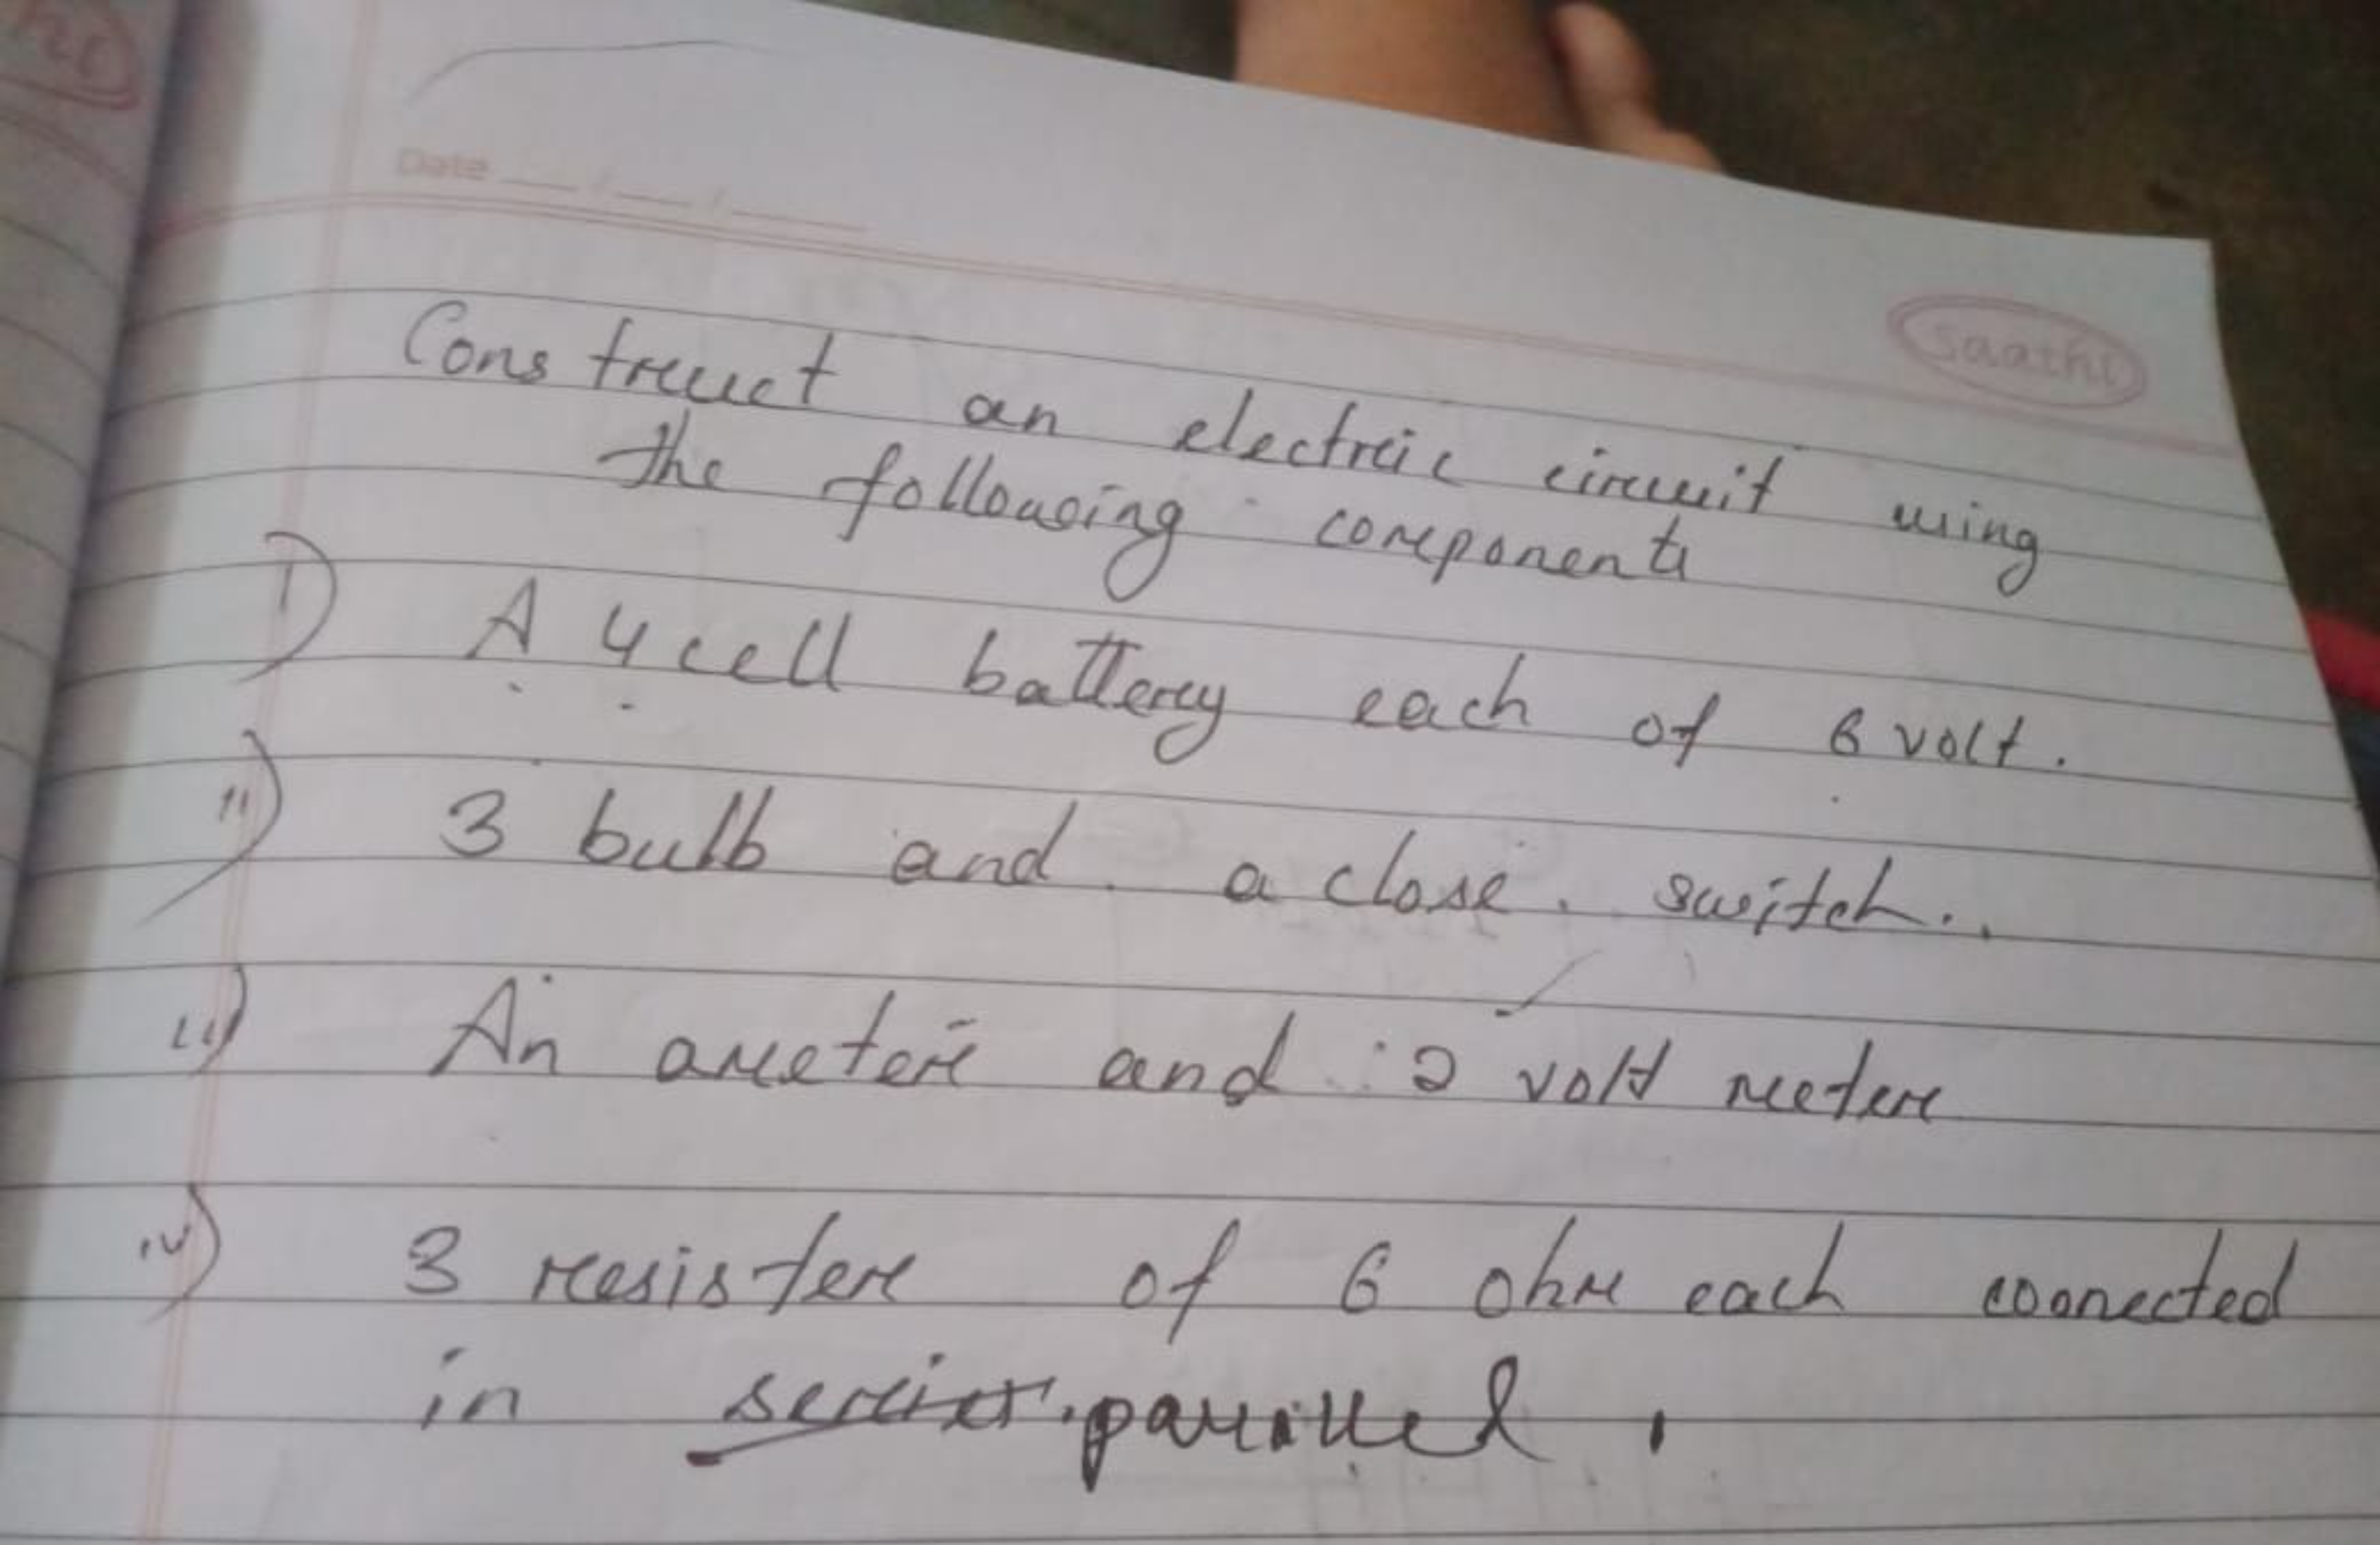 Date __/__/__
Saathi
Construct an electric circuit using
the following components
I) A 4 cell battery each of 6 volt.
II) 3 bulb and a close switch.
III) An ameter and 2 volt meter
IV) 3 resister of 6 ohm each connected
in series. parallel.